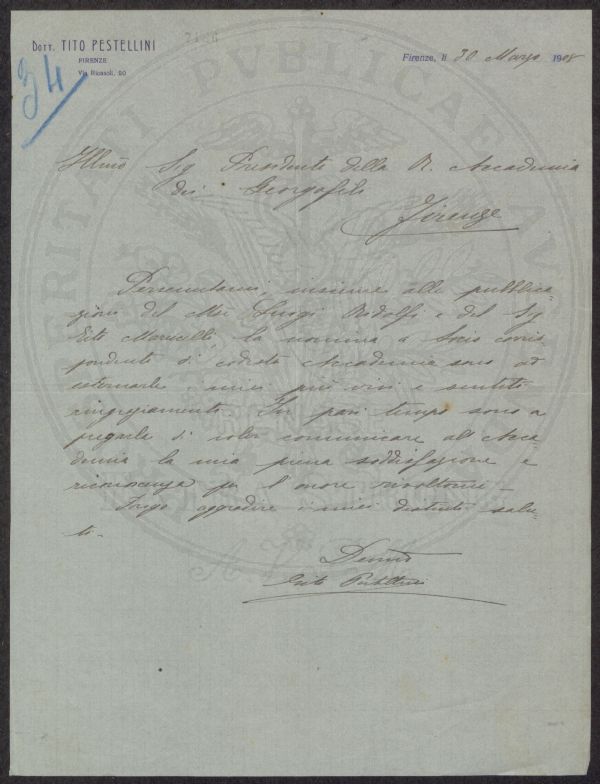 DOTT. TITO PESTELLINI
FIRENZE
Via Ricasoli, 20
34
Firenze, li 30 Marzo 1908
Illmo Sig Presidente della R. Accademia
dei Georgofili
Firenze
Pervenutami, insieme alle pubblica-
zioni del Mse Luigi Ridolfi e del Sig
Tito Marucelli, la nomina a socio corris
pondente di codesta Accademia sono ad
esternarle i miei più vivi e sentiti
ringraziamenti. In pari tempo sono a
pregarla di voler comunicare all'Acca
demia la mia piena soddisfazione e
riconoscenza per l'onore
Prego aggradire i miei distinti salu-
ti.
Devmo
Tito Pestellini